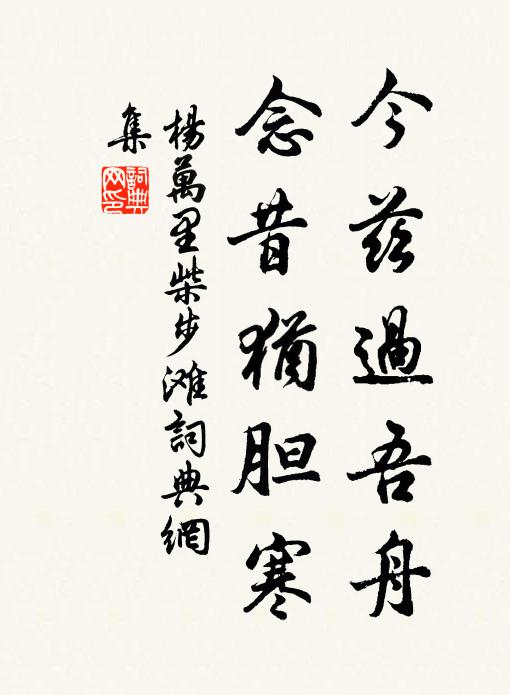 今茲過吾舟
念昔猶胆寒
楊萬里柴步滩詞典網
集
詞典
网印